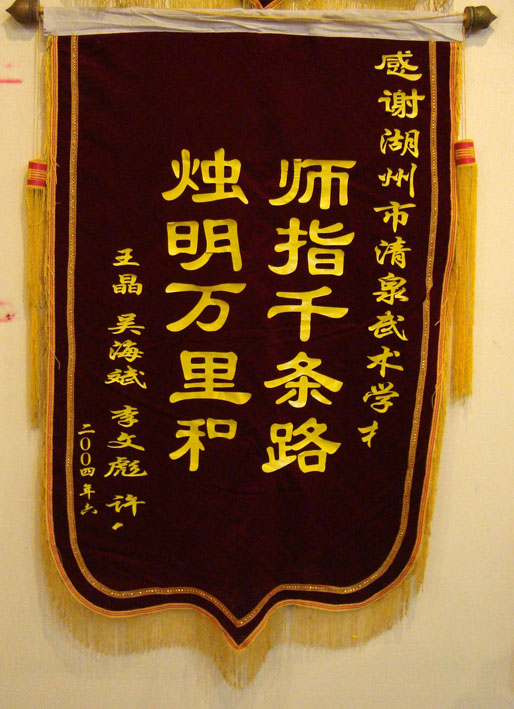 感谢湖州市清泉武术学
师指千条路
烛明万里和
王晶 吴海斌 李文彪 许
二〇〇四年六